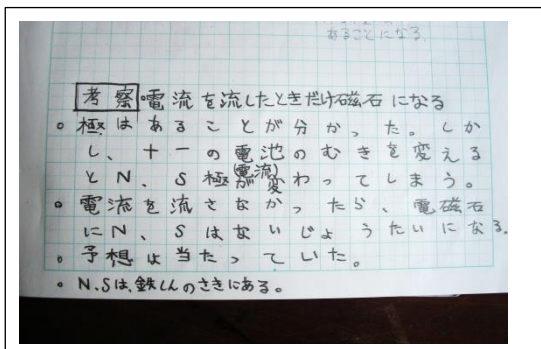 あることになる。
考察 電流を流したときだけ磁石になる
。極はあることが分かった。しか
し、十一の電池のむきを変える
とN、S極が(電流)変わってしまう。
。電流を流さなかったら、電磁石
にN、Sはないじょうたいになる。
。予想は当たっていた。
。N.Sは、鉄しんのさきにある。